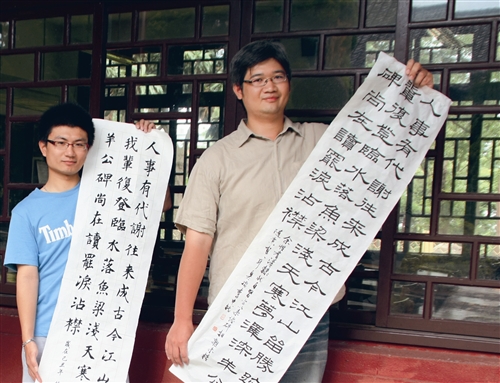 人事有代謝往來成古今江山
我輩復登臨水落魚梁淺天寒
羊公碑尚在讀罷淚沾襟
歲在己丑年
Timb
人事有代謝往來成古今江山留勝跡
輩復登臨水落魚梁淺天寒夢澤深羊公
碑尚在讀罷淚沾襟